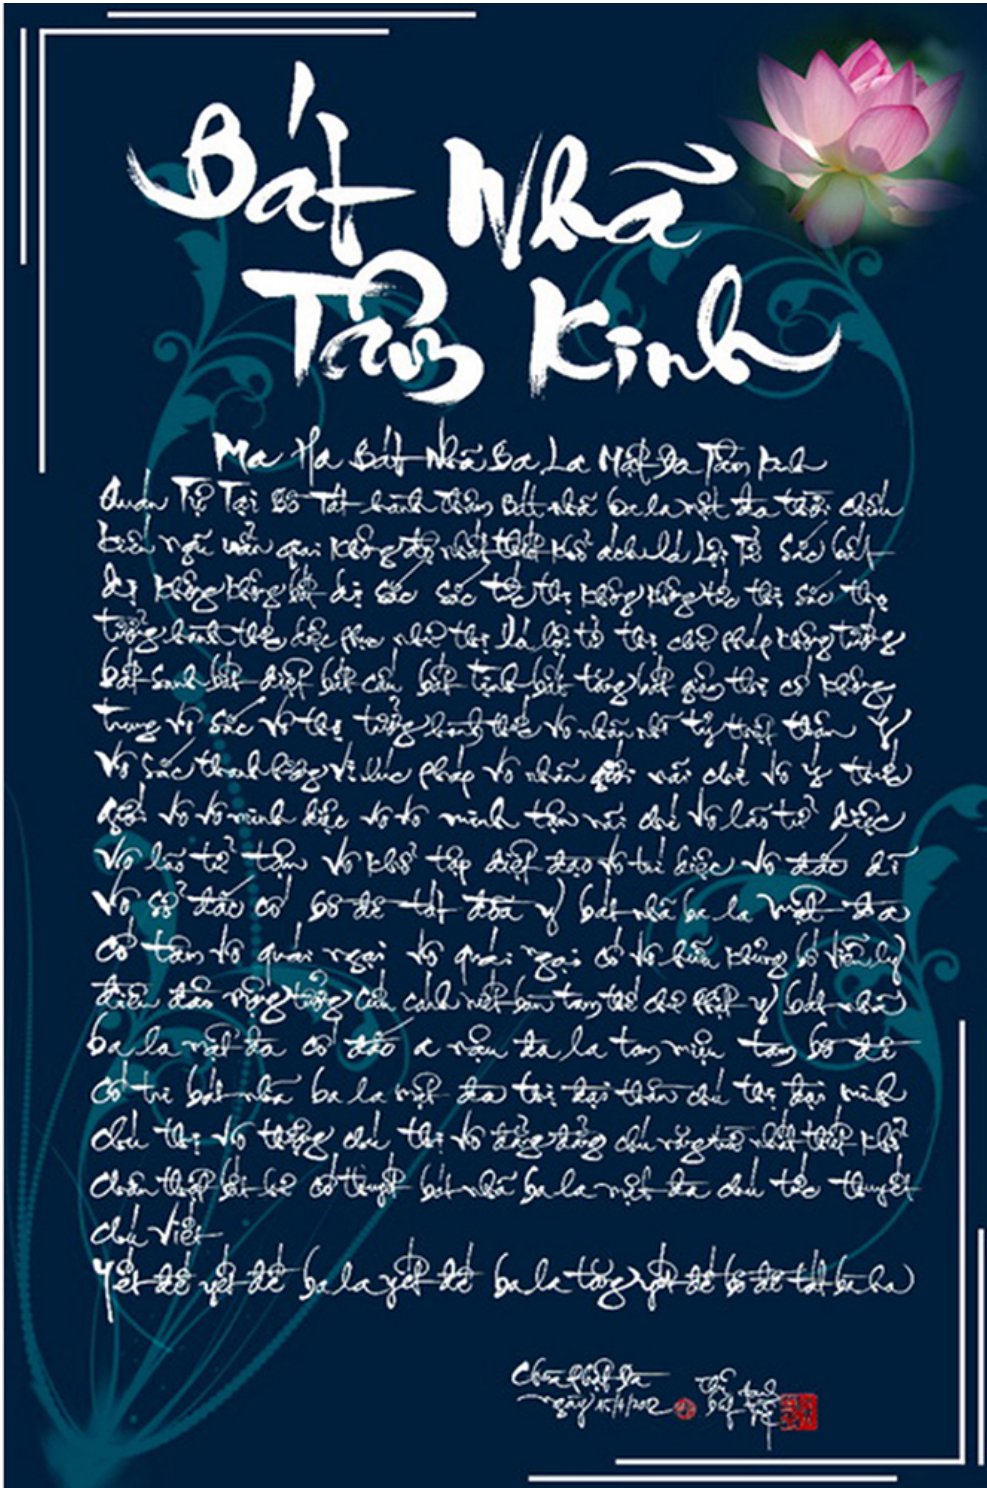 Bát Nhã
Tâm Kinh
Ma Ha Bát Nhã Ba La Mật Đa Tâm Kinh
Quán Tự Tại Bồ Tát hành thâm Bát nhã ba la mật đa thời chiếu
kiến ngũ uẩn giai không độ nhất thiết khổ ách Xá Lợi Tử Sắc bất
dị không không bất dị sắc sắc tức thị không không tức thị sắc thọ
tưởng hành thức diệc phục như thị Xá lợi tử thị chư pháp không tướng
bất sanh bất diệt bất cấu bất tịnh bất tăng bất giảm thị cố không
trung vô sắc vô thọ tưởng hành thức vô nhãn nhĩ tỷ thiệt thân ý
vô sắc thanh hương vị xúc pháp vô nhãn giới nãi chí vô ý thức
giới vô vô minh diệc vô vô minh tận nãi chí vô lão tử diệc
vô lão tử tận vô khổ tập diệt đạo vô trí diệc vô đắc dĩ
vô sở đắc cố bồ đề tát đỏa y bát nhã ba la mật đa
cố tâm vô quái ngại vô quái ngại cố vô hữu khủng bố viễn ly
điên đảo mộng tưởng cứu cánh niết bàn tam thế chư Phật y bát nhã
ba la mật đa cố đắc a nậu đa la tam miệu tam bồ đề
cố tri bát nhã ba la mật đa thị đại thần chú thị đại minh
chú thị vô thượng chú thị vô đẳng đẳng chú năng trừ nhất thiết khổ
chân thật bất hư cố thuyết bát nhã ba la mật đa chú tức thuyết
chú viết
Yết đế yết đế ba la yết đế ba la tăng yết đế bồ đề tát bà ha
Chùa Phật Đà
ngày 15/4/2012